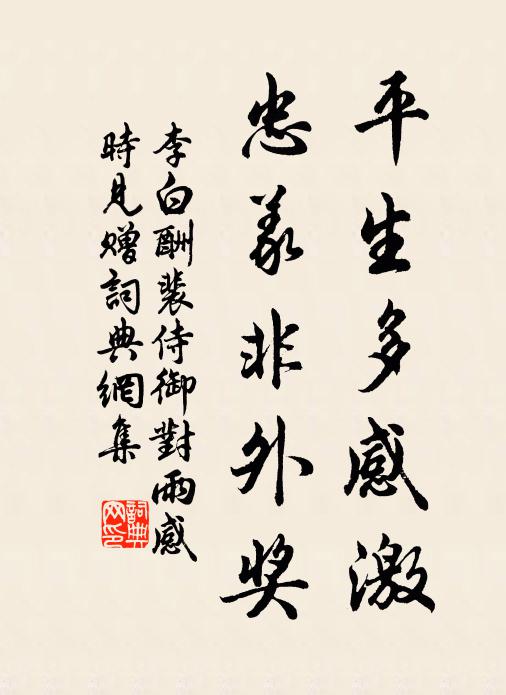 平生多感激
忠義非外奖
李白酬裴侍御對雨感
時見贈詞典網集
詞典
网印